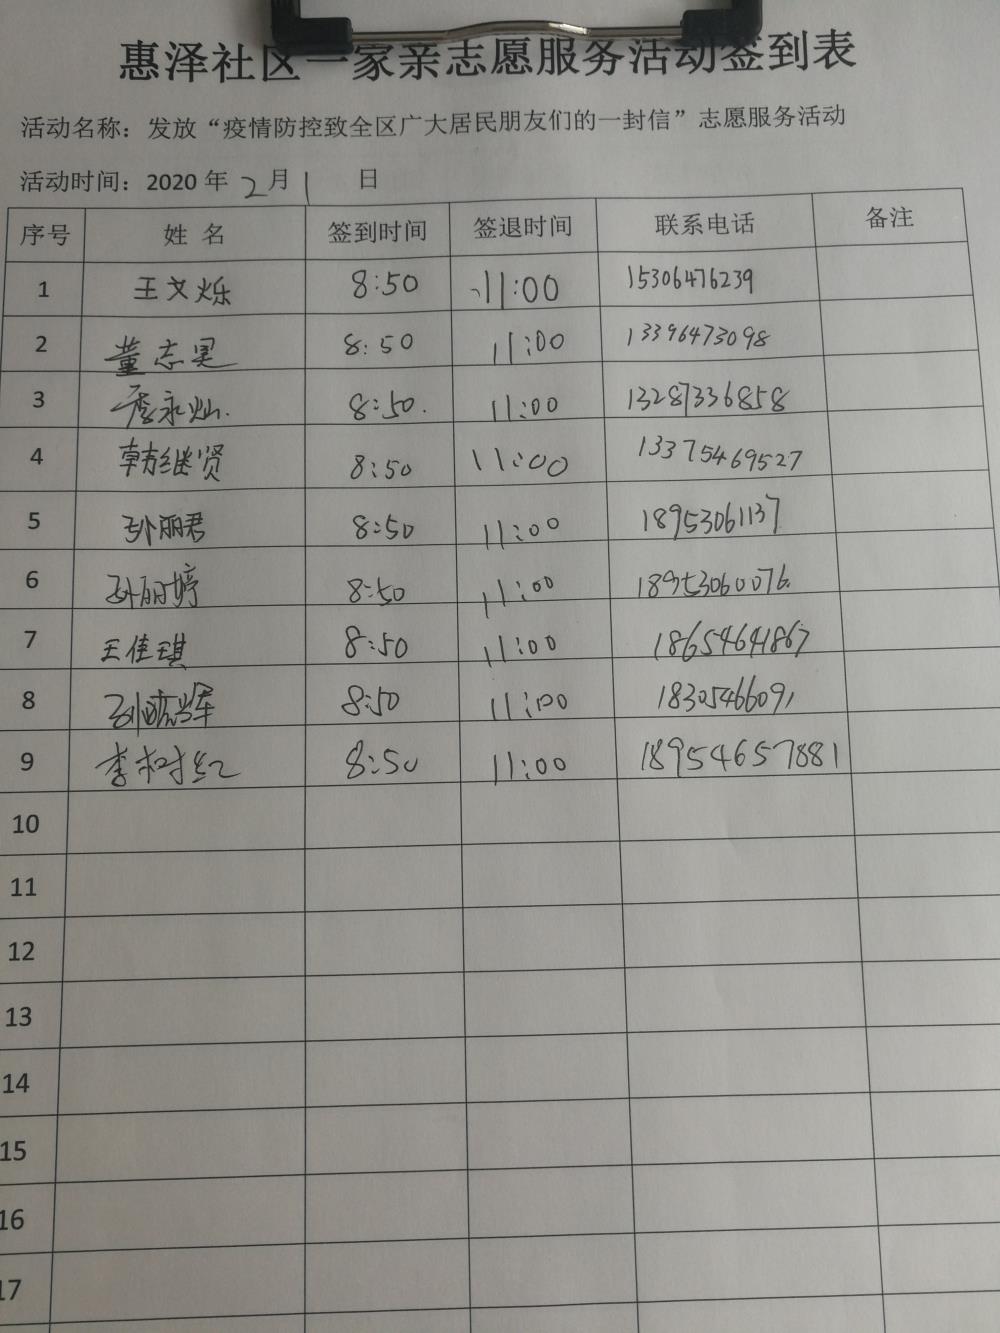 惠泽社区一家亲志愿服务活动签到表
活动名称：发放“疫情防控致全区广大居民朋友们的一封信”志愿服务活动
活动时间：2020 年 2 月 1 日
序号 姓 名 签到时间 签退时间 联系电话 备注
1 王文烁 8:50 11:00 15306476239
2 董志昊 8:50 11:00 13396473098
3 季永灿. 8:50. 11:00 13287336858
4 韩继贤 8:50 11:00 13375469527
5 孙丽君 8:50 11:00 18953061137
6 孙丽婷 8:50 11:00 18953060076.
7 王佳琪 8:50 11:00 18654641867
8 8:50 11:00 18305466091
9 李树红 8:50 11:00 18954657881
10
11
12
13
14
15
16
17